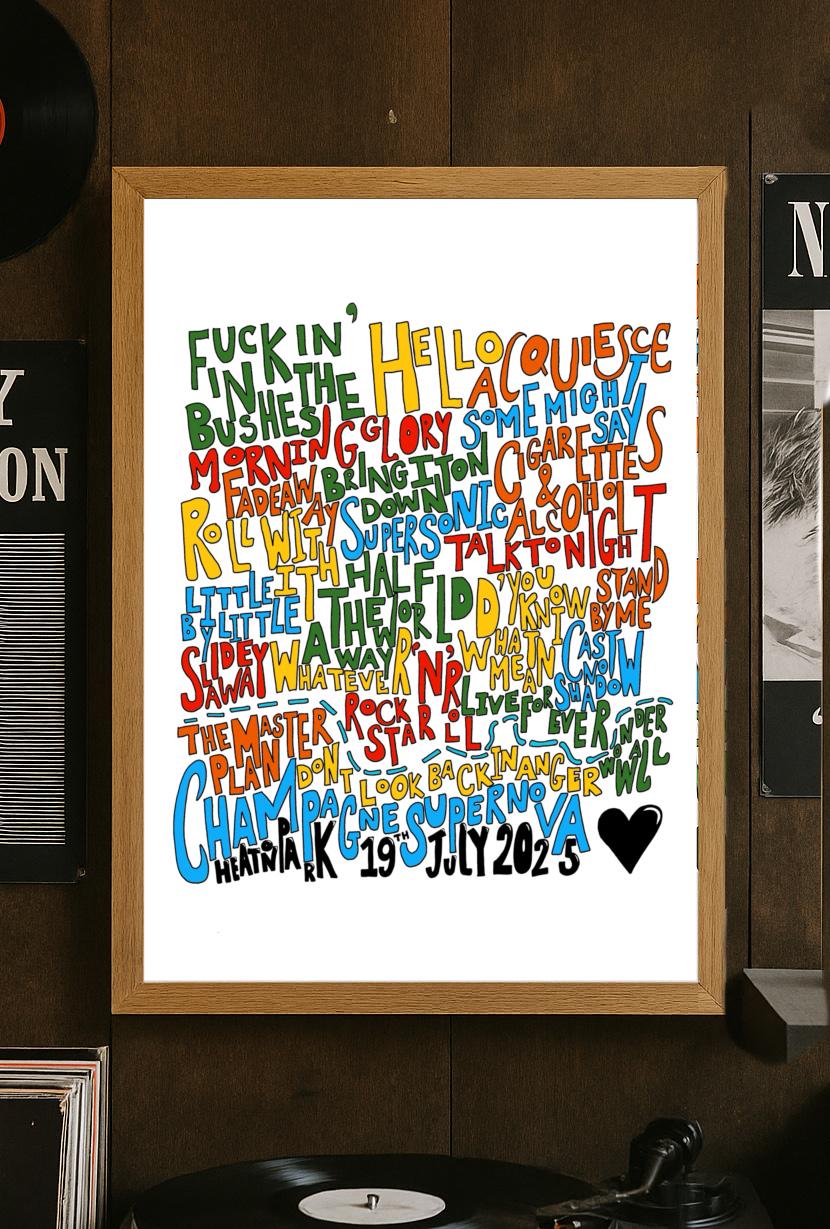 FUCKIN'
IN THE
BUSHES
HELLO
ACQUIESCE
MORNING GLORY
SOME MIGHT
SAY
FADEAWAY
BRING IT ON
DOWN
CIGARETTES
& ALCOHOL
ROLL WITH
IT
SUPERSONIC
TALK TONIGHT
LITTLE
BY LITTLE
HALF
THE WORLD
AWAY
D'YOU
KNOW
WHAT I
MEAN
STAND
BY ME
SLIDE
AWAY
WHATEVER
CAST
NO
SHADOW
THE MASTER
PLAN
ROCK
'N'
ROLL
STAR
LIVE FOR
EVER
DON'T
LOOK BACK IN ANGER
WONDER
WALL
CHAMPAGNE SUPERNOVA
HEATON PARK 19TH JULY 2025
Y
ON
N